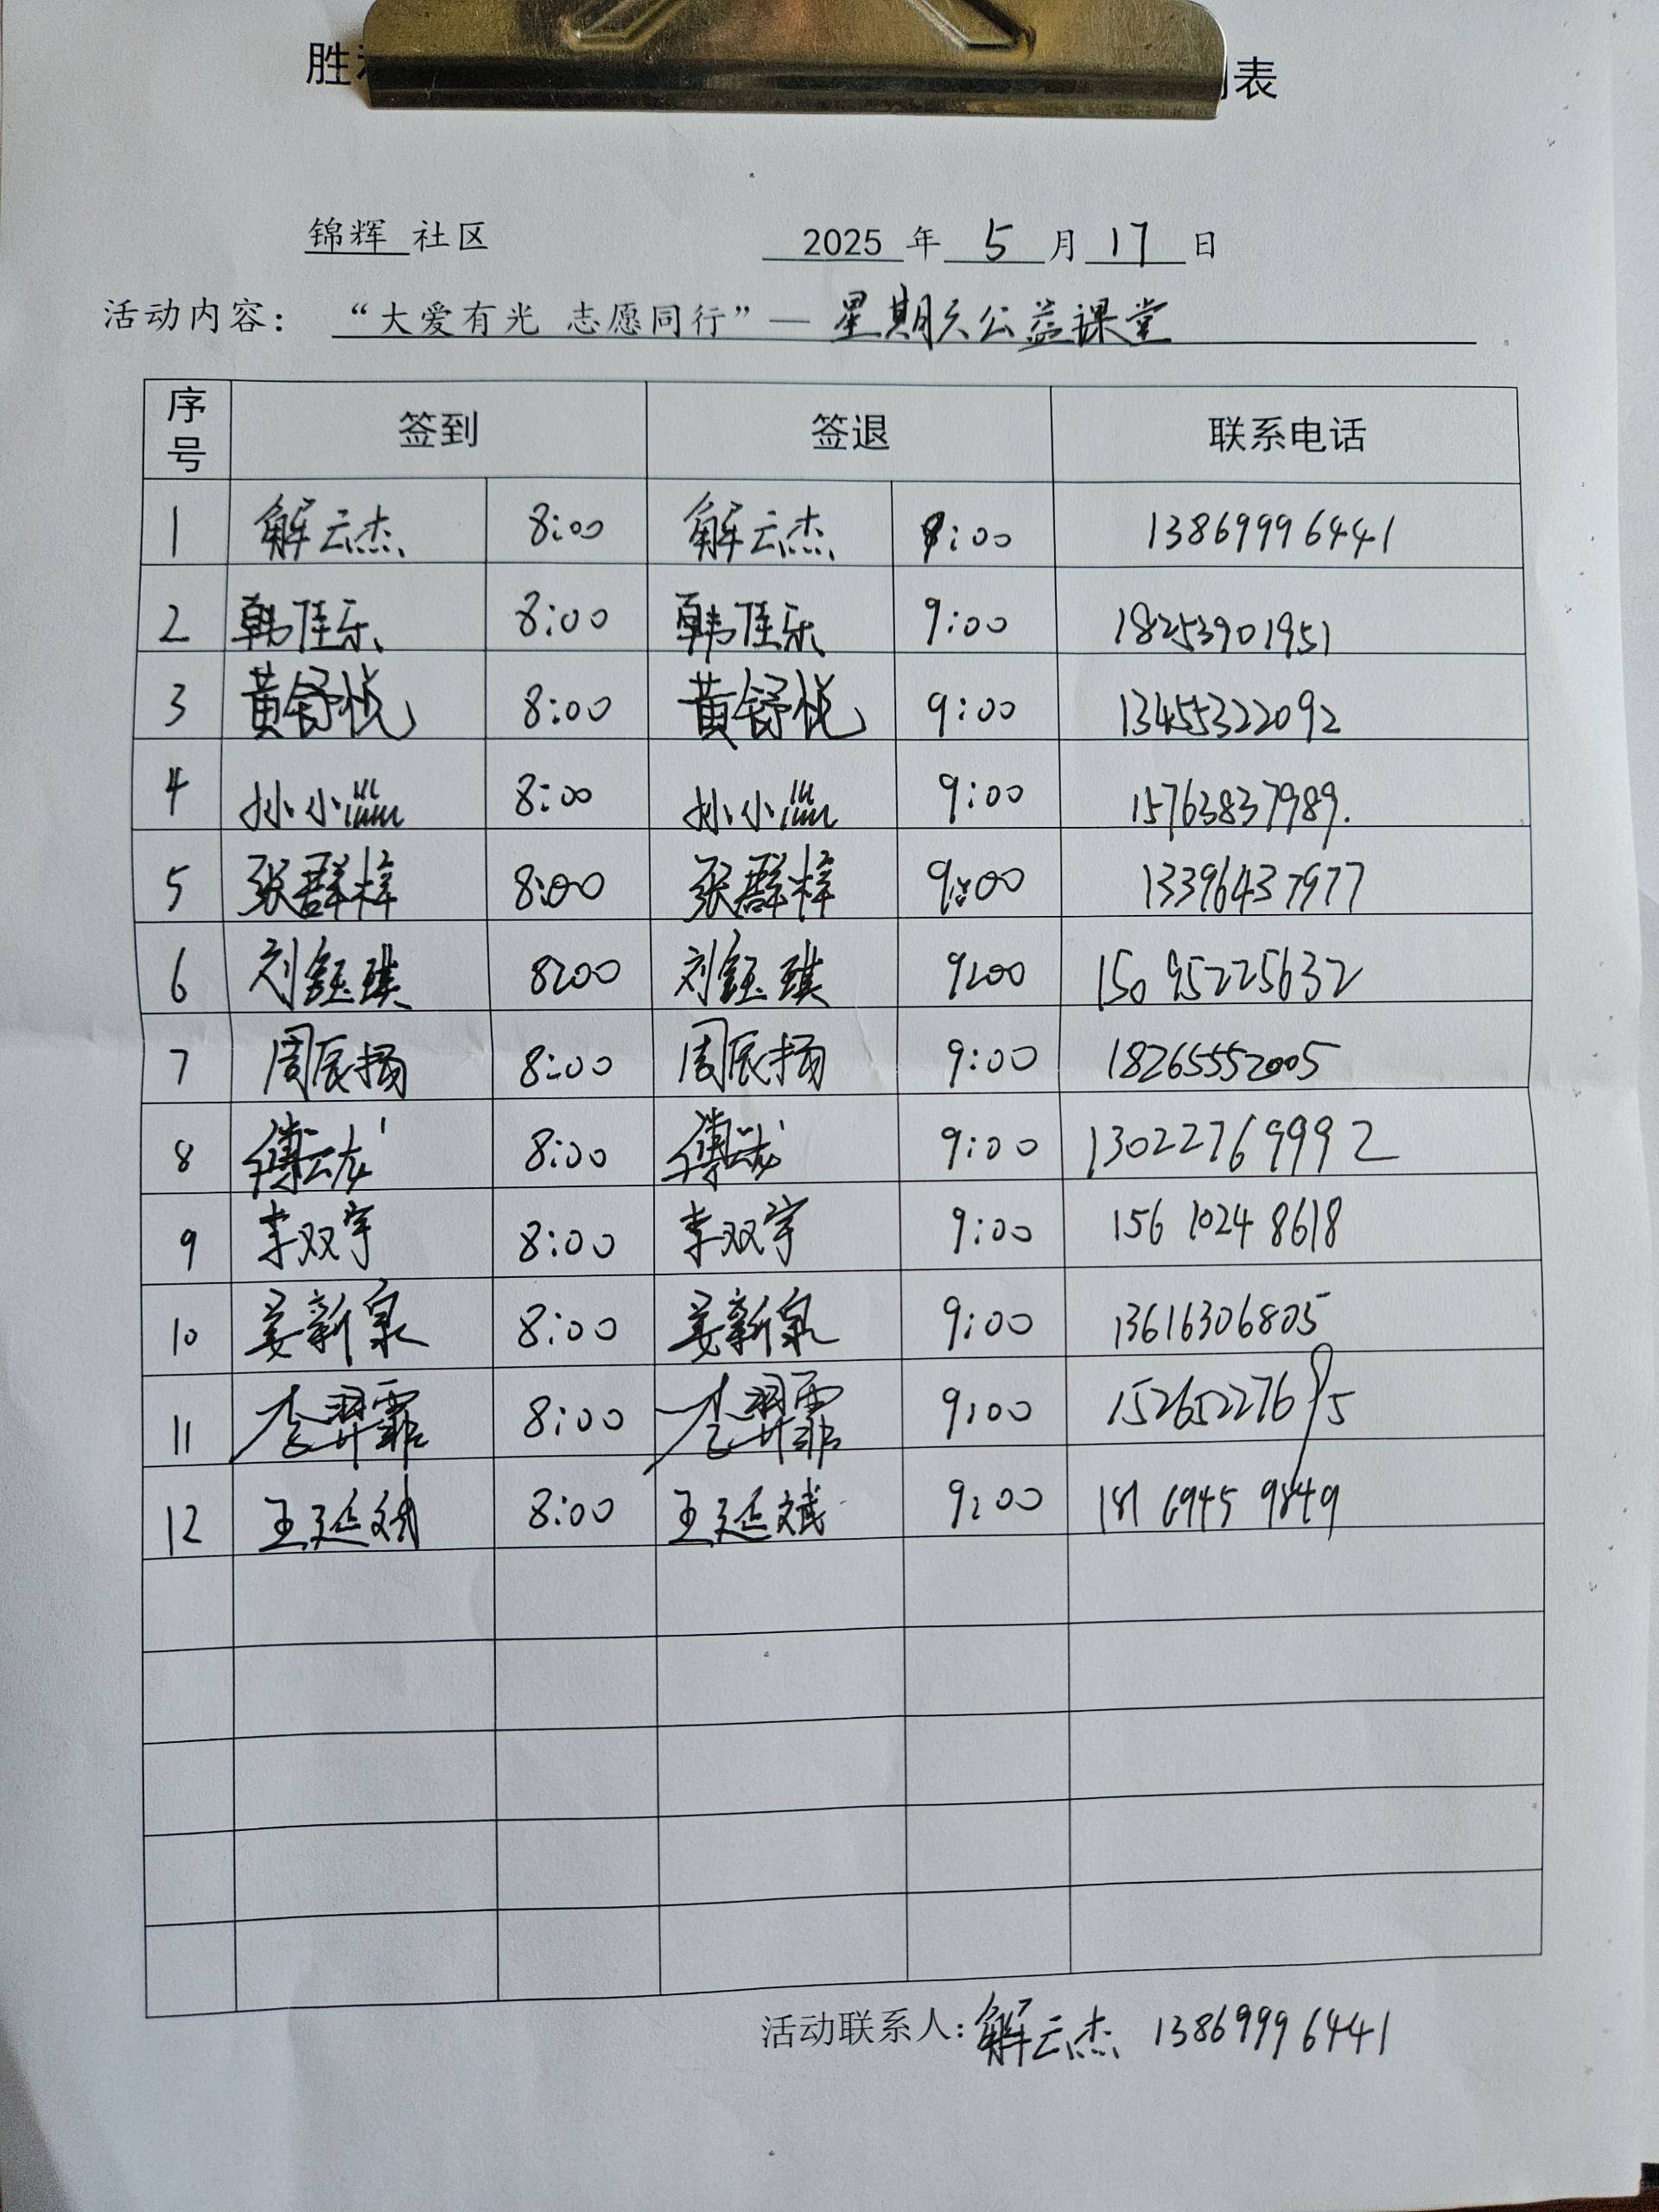 胜 表
锦辉 社区 2025 年 5 月 17 日
活动内容： “大爱有光 志愿同行”— 星期六公益课堂
序号 签到 签退 联系电话
1 解云杰 8:00 解云杰 9:00 13869996441
2 韩佳乐 8:00 韩佳乐 9:00 18253901951
3 黄舒悦 8:00 黄舒悦 9:00 13455322092
4 孙小 8:00 孙小 9:00 15763837989.
5 张群梓 8:00 张群梓 9:00 13396437977
6 刘钰琪 8:00 刘钰琪 9:00 15095225632
7 周辰扬 8:00 周辰扬 9:00 18265552005
8 傅云龙 8:00 傅云龙 9:00 13022769992
9 李双宇 8:00 李双宇 9:00 156 1024 8618
10 姜新泉 8:00 姜新泉 9:00 13616306805
11 李羿霏 8:00 李羿霏 9:00 15265227695
12 王延斌 8:00 王延斌 9:00 181 6945 9849
活动联系人：解云杰 13869996441